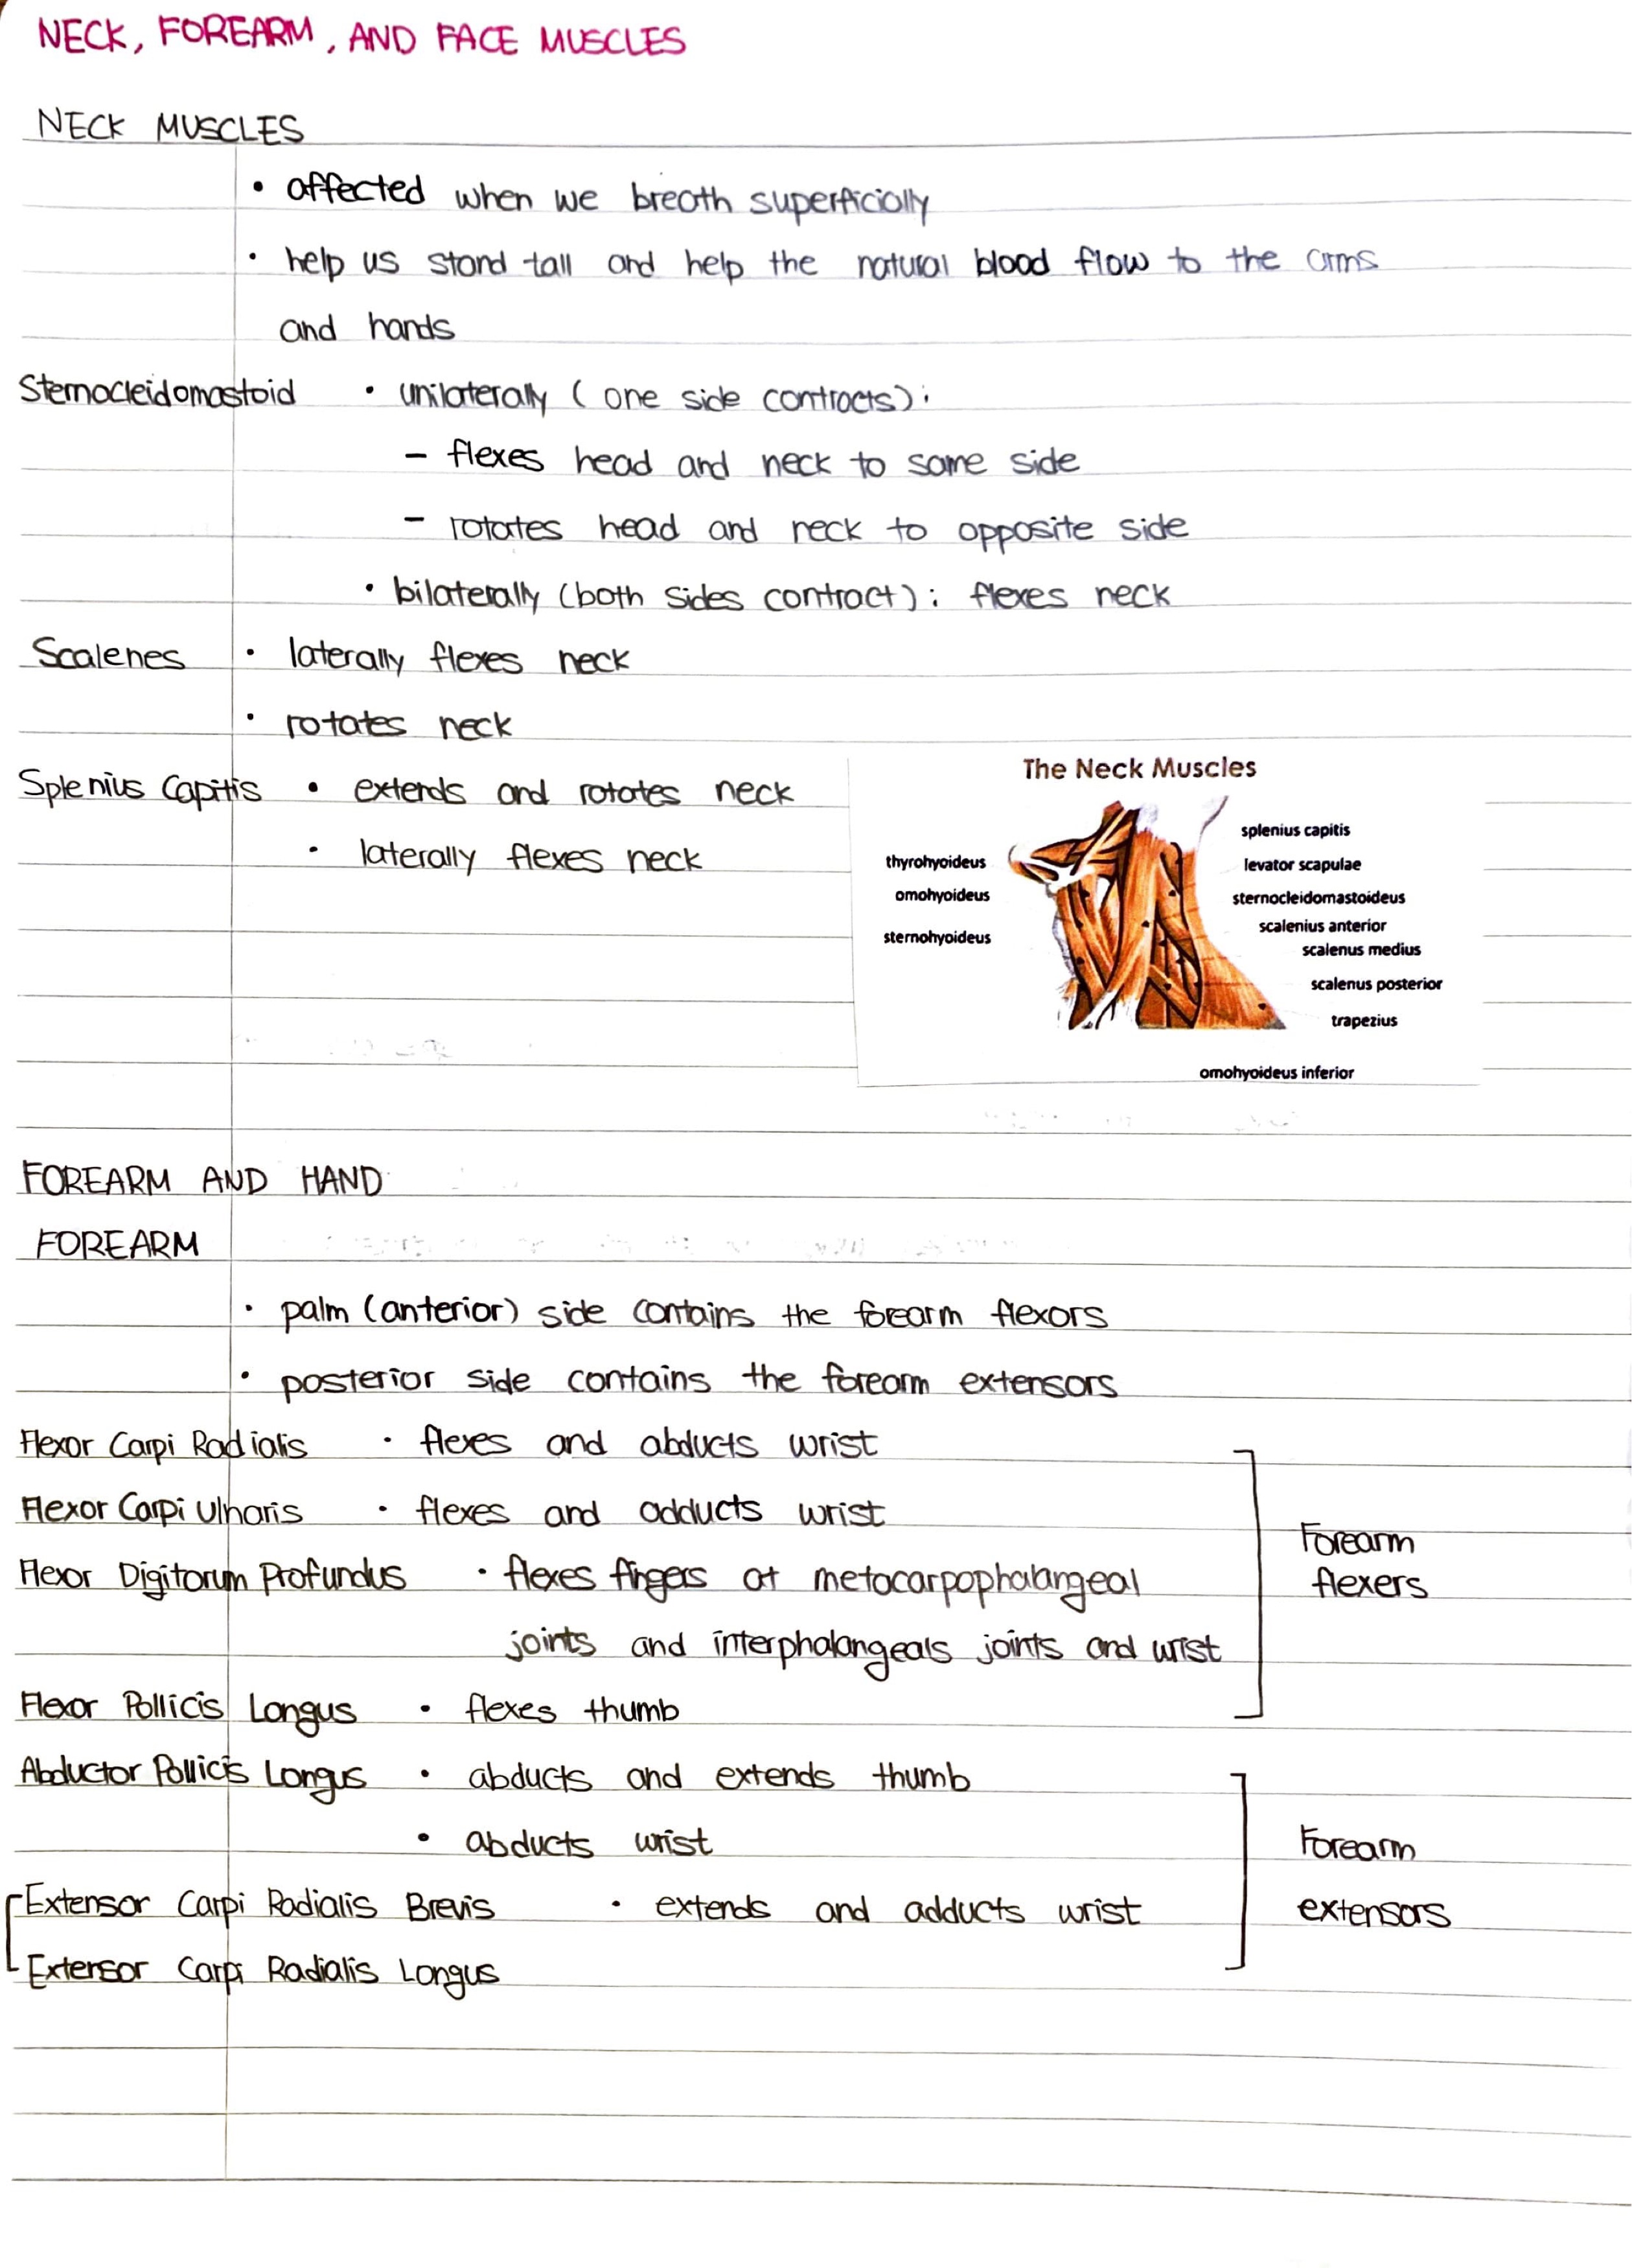 NECK, FOREARM, AND FACE MUSCLES
NECK MUSCLES
• affected when we breath superficially
• help us stand tall and help the natural blood flow to the arms
and hands
Sternocleidomastoid • unilaterally (one side contracts):
- flexes head and neck to same side
- rotates head and neck to opposite side
• bilaterally (both sides contract): flexes neck
Scalenes • laterally flexes neck
• rotates neck
Splenius Capitis • extends and rotates neck
• laterally flexes neck
The Neck Muscles
thyrohyoideus
omohyoideus
sternohyoideus
splenius capitis
levator scapulae
sternocleidomastoideus
scalenius anterior
scalenus medius
scalenus posterior
trapezius
omohyoideus inferior
FOREARM AND HAND
FOREARM
• palm (anterior) side contains the forearm flexors
• posterior side contains the forearm extensors
Flexor Carpi Radialis • flexes and abducts wrist
Flexor Carpi Ulnaris • flexes and adducts wrist
Flexor Digitorum Profundus • flexes fingers at metacarpophalangeal
joints and interphalangeals joints and wrist
Flexor Pollicis Longus • flexes thumb
Forearm
flexers
Abductor Pollicis Longus • abducts and extends thumb
• abducts wrist
Extensor Carpi Radialis Brevis • extends and adducts wrist
Extensor Carpi Radialis Longus
Forearm
extensors